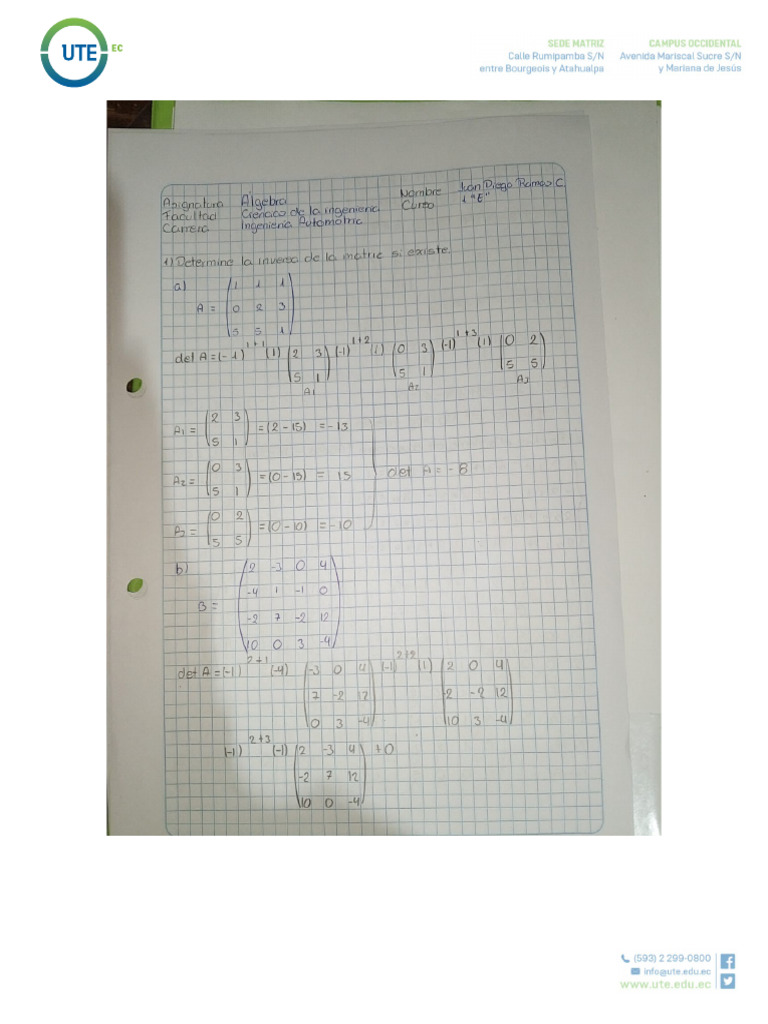 UTE EC
SEDE MATRIZ
Calle Rumipamba S/N
entre Bourgeois y Atahualpa
CAMPUS OCCIDENTAL
Avenida Mariscal Sucre S/N
y Mariana de Jesús
Asignatura Algebra Nombre Juan Diego Ramos C
Facultad Ciencias de la ingenieria Curso 1 "E"
Carrera Ingenieria Automotriz
1) Determine la inversa de la matriz si existe.
a)
A = (1 1 1
0 2 3
5 5 1)
det A = (-1)^1+1 (1) (2 3 / 5 1) (-1)^1+2 (1) (0 3 / 5 1) (-1)^1+3 (1) (0 2 / 5 5)
A1 A2 A3
A1 = (2 3 / 5 1) = (2-15) = -13
A2 = (0 3 / 5 1) = (0-15) = 15 det A = -8
A2 = (0 2 / 5 5) = (0-10) = -10
b)
B = (2 -3 0 4
-4 1 -1 0
-2 7 -2 12
10 0 3 -4)
det A = (-1)^2+1 (-4) (-3 0 4 / 7 -2 12 / 0 3 -4) (-1)^2+2 (1) (2 0 4 / -2 -2 12 / 10 3 -4)
(-1)^2+3 (-1) (2 -3 4 / -2 7 12 / 10 0 -4) +0
(593) 2 299-0800
info@ute.edu.ec
www.ute.edu.ec